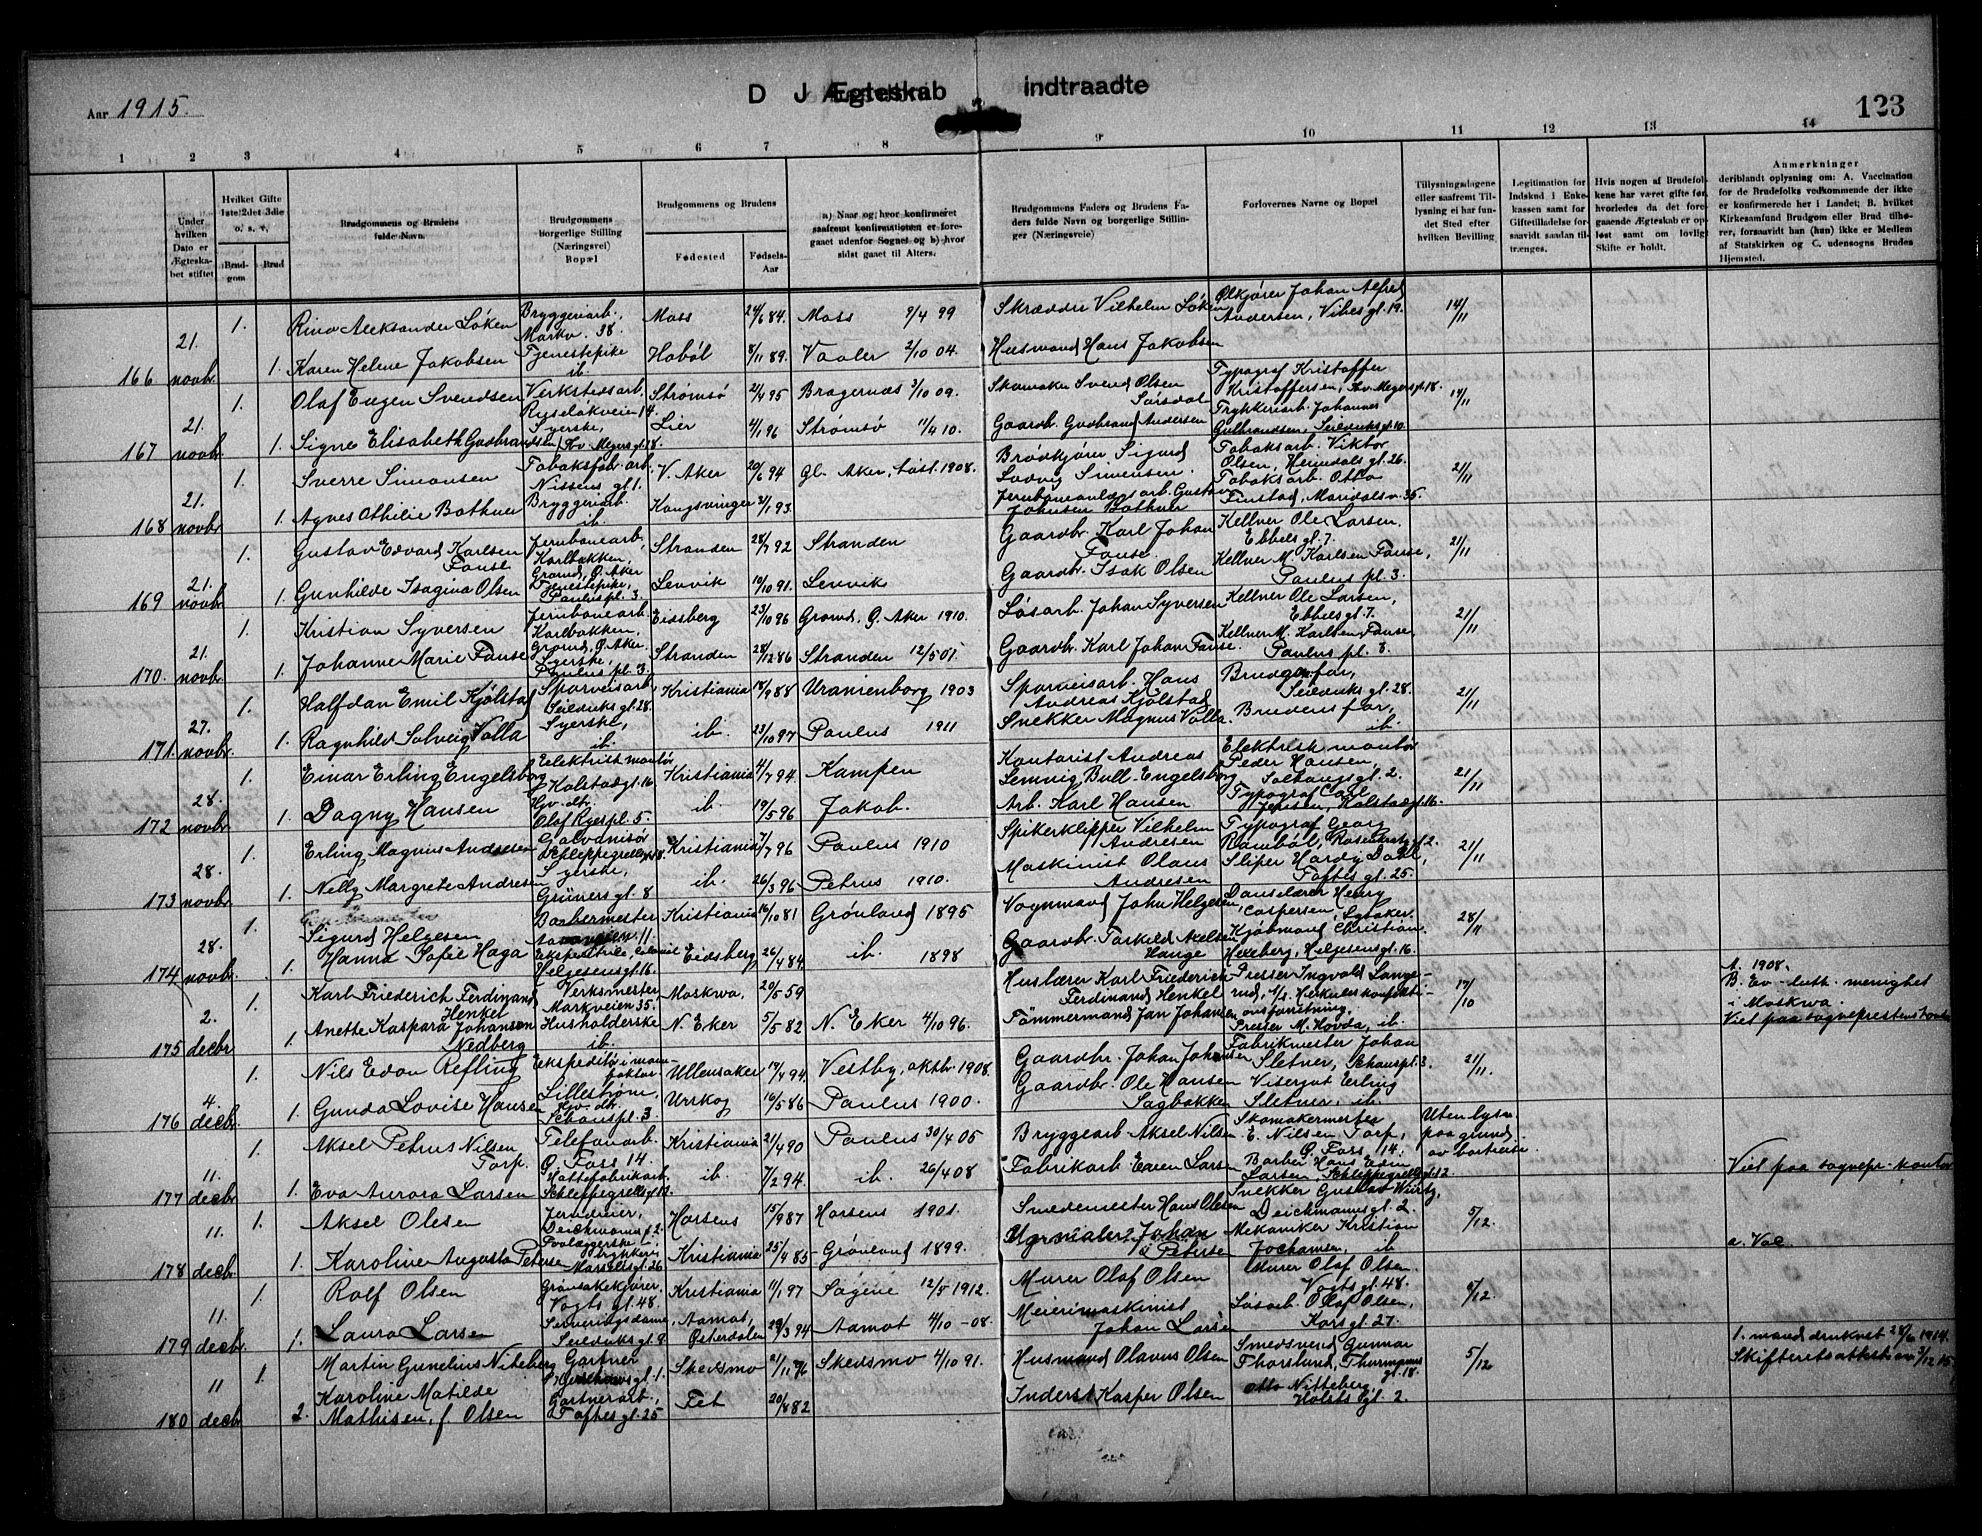 Aar 1915.
D J Ægteskab indtraadte
123
1 2 3 4 5 6 7 8 9 10 11 12 13 14
Under hvilken Dato er Ægteskabet stiftet
Hvilket Gifte 1ste/2det 3die o. s. v.
Brudgom
Brud
Brudgommens og Brudens fulde Navn.
Brudgommens borgerlige Stilling (Næringsvei) Bopæl
Brudgommens og Brudens
Fødested
Fødsels-Aar
a) Naar og hvor konfirmeret saafremt konfirmationen er foregaaet udenfor Sognet og b) hvor sidst gaaet til Alters.
Brudgommens Faders og Brudens Faders fulde Navn og borgerlige Stillinger (Næringsveie)
Forlovernes Navne og Bopæl
Tillysningsdagene eller saafremt Tillysning ei har fundet Sted efter hvilken Bevilling
Legitimation for Indskud i Enkekassen samt for Giftetilladelse forsaavidt saadan tiltrænges.
Hvis nogen af Brudefolkene har været gifte før, hvorledes da det foregaaende Ægteskab er opløst samt om lovlig Skifte er holdt.
Anmerkninger deriblandt oplysning om: A. Vaccination for de Brudefolks vedkommende der ikke er konfirmerede her i Landet; B. hvilket Kirkesamfund Brudgom eller Brud tilhører, forsaavidt han (hun) ikke er Medlem af Statskirken og C. udensogns Brudes Hjemsted.
166 21. novbr. 1. Rino Aleksander Løken Bryggeriarb., Markv. 38. Moss 24/6 84. Moss 9/4 99 Skrædder Vilhelm Løken Ølkjører Johan Alfred Andersen, Vibes gt. 19. 14/11
1. Karen Helene Jakobsen Tjenestepike ib. Hobøl 8/11 89. Vaaler 2/10 04. Husmand Hans Jakobsen
Typograf Kristoffer Kristoffersen, Hv. Meyersgt. 18.
167 21. novbr. 1. Olaf Eugen Svendsen Verkstedsarb. Ruseløkveien 14. Strømsø 2/4 95 Bragernæs 3/10 09. Skomaker Svend Olsen 14/11
1. Signe Elisabeth Gudbrandsen Syerske, Hv. Meyersgt. 18. Lier 4/1 96 Strømsø 11/4 10. Gaardb. Gudbrand Andersen Trykkeriarb. Johannes Gulbrandsen, Seilduksgt. 10.
168 21. novbr. 1. Sverre Simonsen Tobaksfabr. arb. Nissens gt. 1. V. Aker 20/6 94 Gl. Aker, høst. 1908. Brødkjører Sigurd Ludvig Simensen. Tobaksarb. Viktor Olsen, Heimdals gt. 26. 21/11
1. Agnes Othilie Bothner Bryggeriarb. ib. Kongsvinger 3/1 93. Jernbaneanlægsarb. Gustav Johnsen Bothner Tobaksarb. Otto Finstad, Maridalsv. 35.
169 21. novbr. 1. Gustav Edvard Karlsen Fause Jernbanearb., Karlbakken, Grorud, Ø. Aker Stranden 28/7 92 Stranden Gaardb. Karl Johan Fause. Kellner Ole Larsen, Ebbels gt. 7. 21/11
1. Gunhilde Isagina Olsen Tjenestepike, Paulus pl. 3. Lenvik 10/10 91. Lenvik Gaardb. Isak Olsen Kellner M. Karlsen Fause, Paulus pl. 3.
170. 21. novbr. 1. Kristian Syversen Jernbanearb. Karlbakken, Grorud, Ø. Aker. Eidsberg 23/10 96 Grorud, Ø. Aker 1910. Løsarb. Johan Syversen Kellner Ole Larsen, Ebbels gt. 7. 21/11
1. Johanne Marie Fause Syerske, Paulus pl. 3. Stranden 28/12 86 Stranden 12/5 01. Gaardb. Karl Johan Fause. Kellner M. Karlsen Fause, Paulus pl. 8.
171. 27. novbr. 1. Halfdan Emil Kjølstad Sporveisarb. Seilduks gt. 28. Kristiania 18/9 88 Uranienborg 1903 Sporveisarb. Hans Andreas Kjølstad Brudgo. far, Seilduks gt. 28. 21/11
1. Ragnhild Solveig Volla Syerske, ib. ib. 23/10 97 Paulus 1911 Snekker Magnus Volla. Brudens far, ib.
172 28. novbr. 1. Einar Erling Engelsborg Elektrisk montør Kolstadgt. 16 Kristiania 4/7 94. Kampen Kontorist Andreas Lemvig Bull-Engelsborg Elektrisk montør Peder Hansen, Soltangs gt. 2. 21/11
1. Dagny Hansen Hjv. dtr. Olaf Ryes pl. 5. ib. 19/5 96 Jakob. Arb. Karl Hansen Typograf Carl Jensen, Kolstadgt. 16.
173 28. novbr. 1. Erling Magnus Andresen Galvanisør Schleppegrellsgt. 8. Kristiania 7/7 96 Paulus 1910 Spikerklipper Vilhelm Andresen Typograf Georg Rambøl, Rosenkrantzgt. 2. 21/11
1. Nelly Margrete Andresen Syerske, Grüners gt. 8 ib. 26/3 96 Petrus 1910. Maskinist Olaus Andresen Sliper Hardy Dahl, Toftes gt. 25.
174 28. novbr. 1. Sigurd Helgesen Barbermester 11. Kristiania 16/10 81 Grønland 1895 Vognmand John Helgesen Danselærer Henry Caspersen, 28/11
1. Hanna Sofie Haga Ekspeditrice, Colonial Helgesens gt. 16. Eidsberg 26/4 84. ib. 1898 Gaardbr. Torkild Axelsen Hauge Kjøbmand Christian Hexeberg, Helgesens gt. 16.
175 2. decbr. 1. Karl Friederich Ferdinand Henkel Verksmester Markveien 35. Moskwa, 20/5 59 Huslærer Karl Friederich Ferdinand Henkel Presser Ingvald Langerud, A/s. Herkules konfektionsforretning, 17/10 A. 1908. B. Ev-luth. menighet i Moskwa. Viet paa sogneprestens kontor
1. Anette Kaspara Johansen Nedberg Husholderske ib. N. Eker 5/5 82 N. Eker 4/10 96. Tømmermand Jan Johansen Presser M. Kovda, ib.
176 4. decbr. 1. Nils Edon Refling Ekspeditør i manufaktur Lillestrøm, Ullensaker 17/4 94. Vestby, oktbr. 1908. Gaardbr. Johan Johansen Fabrikmester Johan Sletner, Schouspl. 3. 21/11.
1. Gunda Lovise Hansen Hjv. dtr. Schouspl. 3 Urskog 16/5 86 Paulus 1900. Gaardbr. Ole Hansen Sagbakken Visergut Erling Sletner, ib.
177 11. decbr. 1. Aksel Petrus Nilsen Torp. Telefonarb. Ø. Foss 14. Kristiania 21/4 90 Paulus 30/4 05 Bryggearb Aksel Nilsen Skomakermester E. Nilsen Torp, Ø. Foss 14. Uten lysn. paa grund av bortreise.
1. Eva Aurora Larsen Hattefabrikarb. Schleppegrellsgt. 12. ib. 7/2 94. ib. 26/4 08 Fabrikarb. Even Larsen Barber Hans Edin Larsen, Schleppegrellsgt. 12 Viet paa sognepr. kontor
178 11. decbr. 1. Aksel Olsen Jerndreier, Deichmans gt. 2. Horsens 15/9 87 Horsens 1901. Smedemester Hans Olsen Snekker Gustav Wurtz, Deichmansgt. 2. 5/12.
1. Karoline Augusta Petersen Paalæggerske i trykkeri Marselis gt. 26 Kristiania 25/4 85 Grønland 1899. Johan Petersen Mekaniker Kristian Jochamsen, ib a. Vac
179 11. decbr. 1. Rolf Olsen Grønsakekjører. Vogts gt. 48. Kristiania 11/1 97 Sagene 12/5 1912. Murer Olaf Olsen Murer Olaf Olsen. Vogts gt. 48. 5/12.
1. Laura Larsen Serveringsdame, Seilduks gt. 9 Aamot, Østerdalen 29/3 94 Aamot 4/10-08. Meierimaskinist Johan Larsen Løsarb. Olaf Olsen, Korsgt. 27.
180 11 decbr. 1. Martin Gunelius Niteberg Gartner Skedsmo 2/11 76 Skedsmo 4/10 91. Husmand Olavus Olsen Smedsvend Gunnar Thorslund, Thurmanns gt. 18. 5/12 1. mand druknet 28/6 1914. Skifteretsattest av 3/12 15
2. Karoline Matilde Mathisen, f. Olsen Gartnerarb., Toftes gt. 25 Fet 20/8 82 Inderst Kasper Olsen Otto Nitteberg, Holsts gt. 2.